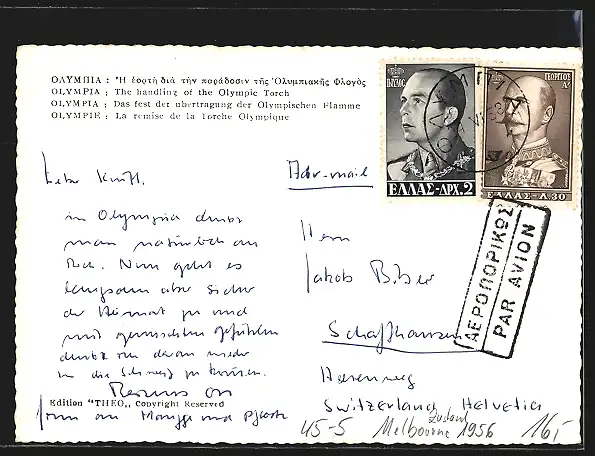 ΟΛΥΜΠΙΑ : Ἡ ἑορτὴ διὰ τὴν παράδοσιν τῆς Ὀλυμπιακῆς Φλογός
OLYMPIA : The handling of the Olympic Torch
OLYMPIA : Das fest der ubertragung der Olympischen Flamme
OLYMPIE : La remise de la Torche Olympique
ΠΑΥΛΟΣ
ΕΛΛΑΣ-ΔΡΧ.2
ΓΕΩΡΓΙΟΣ Α'
ΕΛΛΑΣ-Λ.30
ΑΕΡΟΠΟΡΙΚΩΣ
PAR AVION
Air-mail
Herrn
Jakob
Schaffhausen
Switzerland Helvetia
in Olympia denkt
man natürlich an
Dich. Nun geht es
langsam aber sicher
der Heimat zu und
mit gemischten Gefühlen
denkt man daran wieder
in die Schweiz zu kommen.
Edition "THEO,, Copyright Reserved
45-5 Melbourne 1956 16,-